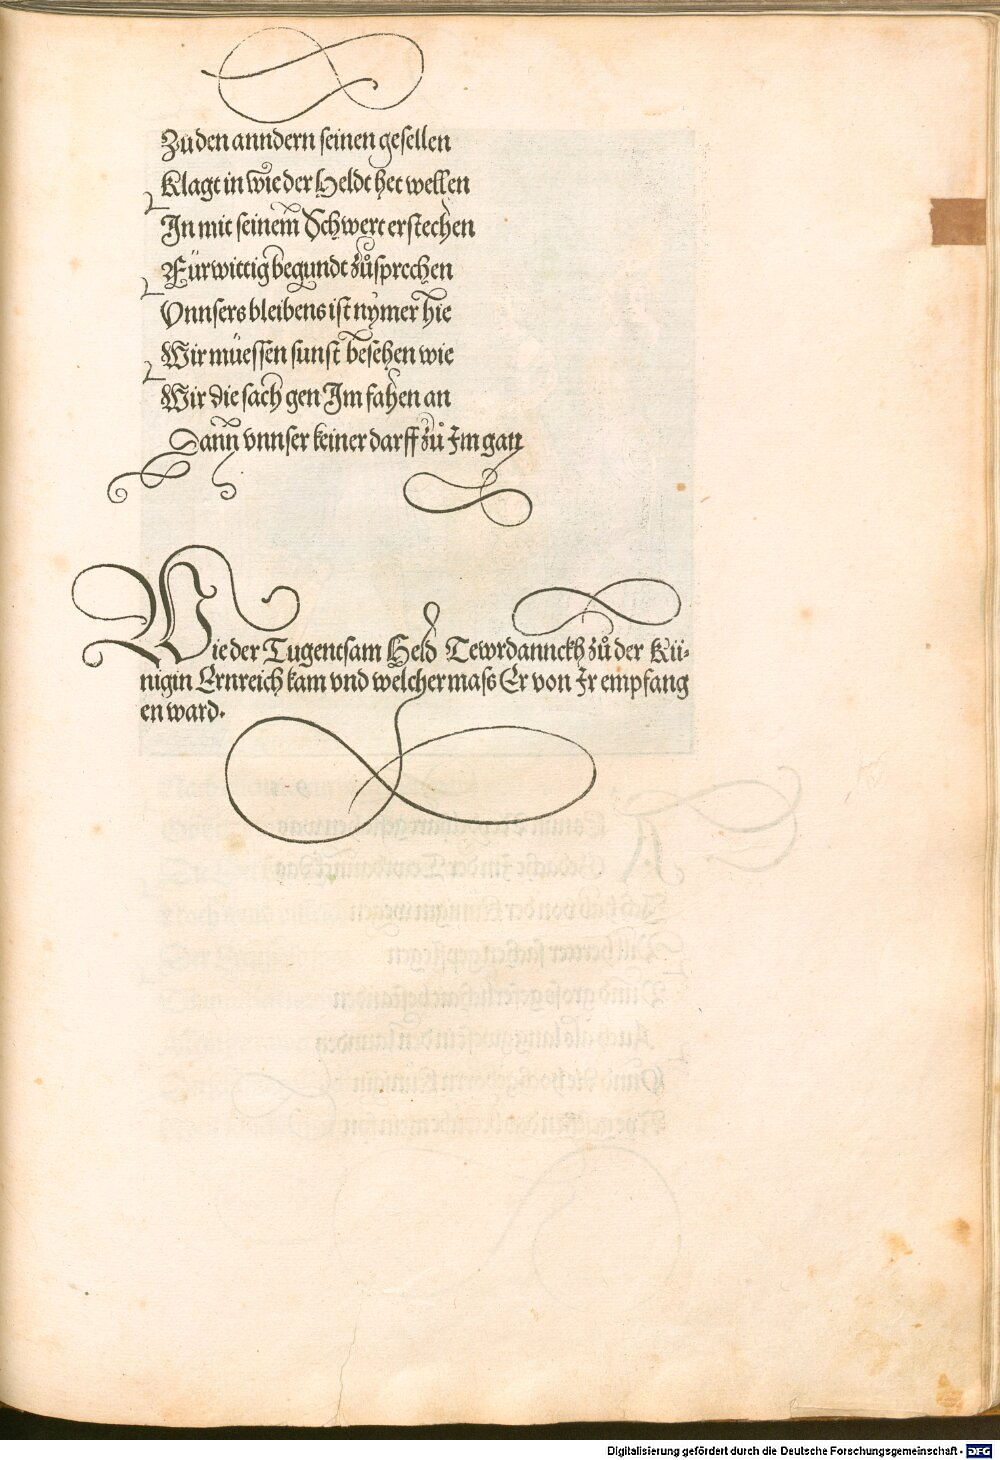 Zů den anndern seinen gesellen
Klagt in wie der Heldt het wellen
In mit seinem Schwert erstechen
Fürwittig begundt zůsprechen
Vnnsers bleibens ist nymer hie
Wir müessen sunst besehen wie
Wir die sach gen Im fahen an
Dann vnnser keiner darff zů Im gan
Wie der Tugentsam Held Tewrdannckh zů der Kü-
nigin Ernreich kam vnd welcher mass Er von Ir empfang
en ward.
Digitalisierung gefördert durch die Deutsche Forschungsgemeinschaft - DFG